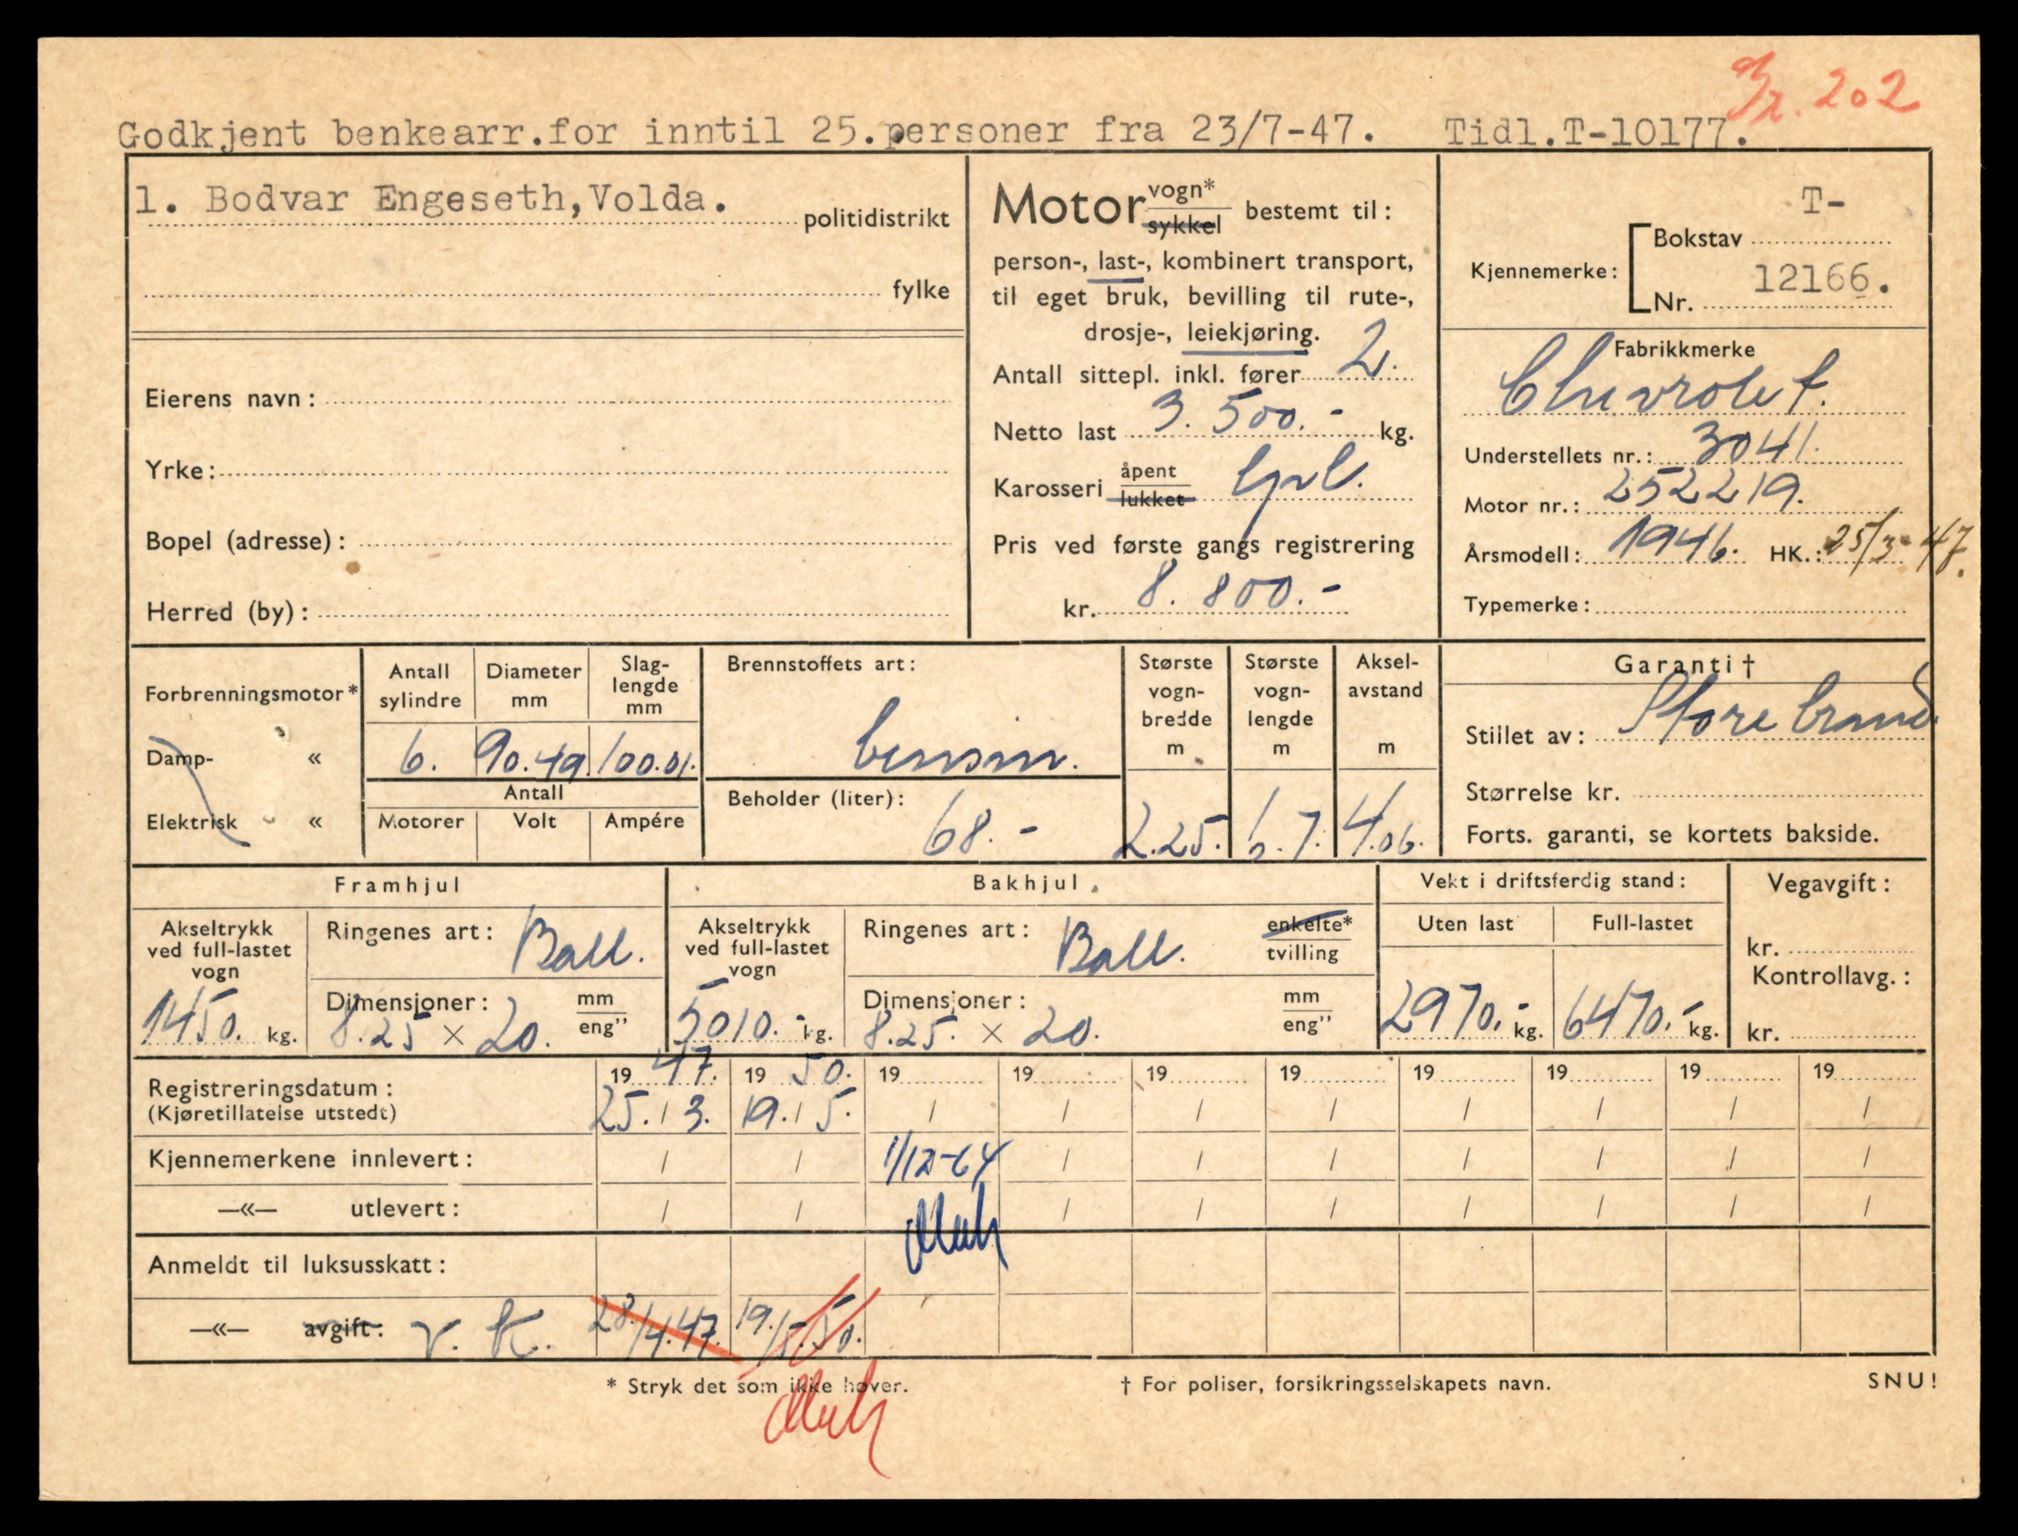 202
Godkjent benkearr.for inntil 25.personer fra 23/7-47. Tidl.T-10177.
1. Bodvar Engeseth,Volda. politidistrikt
fylke
Eierens navn:
Yrke:
Bopel (adresse):
Herred (by):
Motor vogn* sykkel bestemt til:
person-, last-, kombinert transport,
til eget bruk, bevilling til rute-,
drosje-, leiekjøring.
Antall sittepl. inkl. fører 2.
Netto last 3.500.- kg.
Karosseri åpent lukket
Pris ved første gangs registrering
kr. 8.800.-
Kjennemerke: Bokstav T-
Nr. 12166.
Fabrikkmerke
Chevrolet.
Understellets nr.: 3041.
Motor nr.: 252219.
Årsmodell: 1946. HK.: 25/3-47.
Typemerke:
Forbrenningsmotor*
Damp- «
Elektrisk «
Antall sylindre Diameter mm Slag-lengde mm
6. 90.49. 100.01.
Antall
Motorer Volt Ampére
Brennstoffets art:
bensin.
Beholder (liter):
68.-
Største vogn-bredde m Største vogn-lengde m Aksel-avstand m
2.25. 6.7. 4.06.
Garanti†
Stillet av: Storebrand.
Størrelse kr.
Forts. garanti, se kortets bakside.
Framhjul
Akseltrykk ved full-lastet vogn
1450. kg.
Ringenes art: Ball.
Dimensjoner: mm eng”
8.25 × 20.
Bakhjul
Akseltrykk ved full-lastet vogn
5010.- kg.
Ringenes art: Ball. enkelte* tvilling
Dimensjoner: mm eng”
8.25. × 20.
Vekt i driftsferdig stand:
Uten last Full-lastet
2970.- kg. 6470.- kg.
Vegavgift:
kr.
Kontrollavg.:
kr.
Registreringsdatum: 19 47. 19 50. 19 19 19 19 19 19 19 19
(Kjøretillatelse utstedt) 25./3. 19./5. / / / / / / / /
Kjennemerkene innlevert: / / 1/12-64 / / / / / / /
—«— utlevert: / / / / / / / / /
Anmeldt til luksusskatt:
—«— avgift: v. k. 28./4.47. 19./5.50.
* Stryk det som ikke høver. † For poliser, forsikringsselskapets navn. SNU!